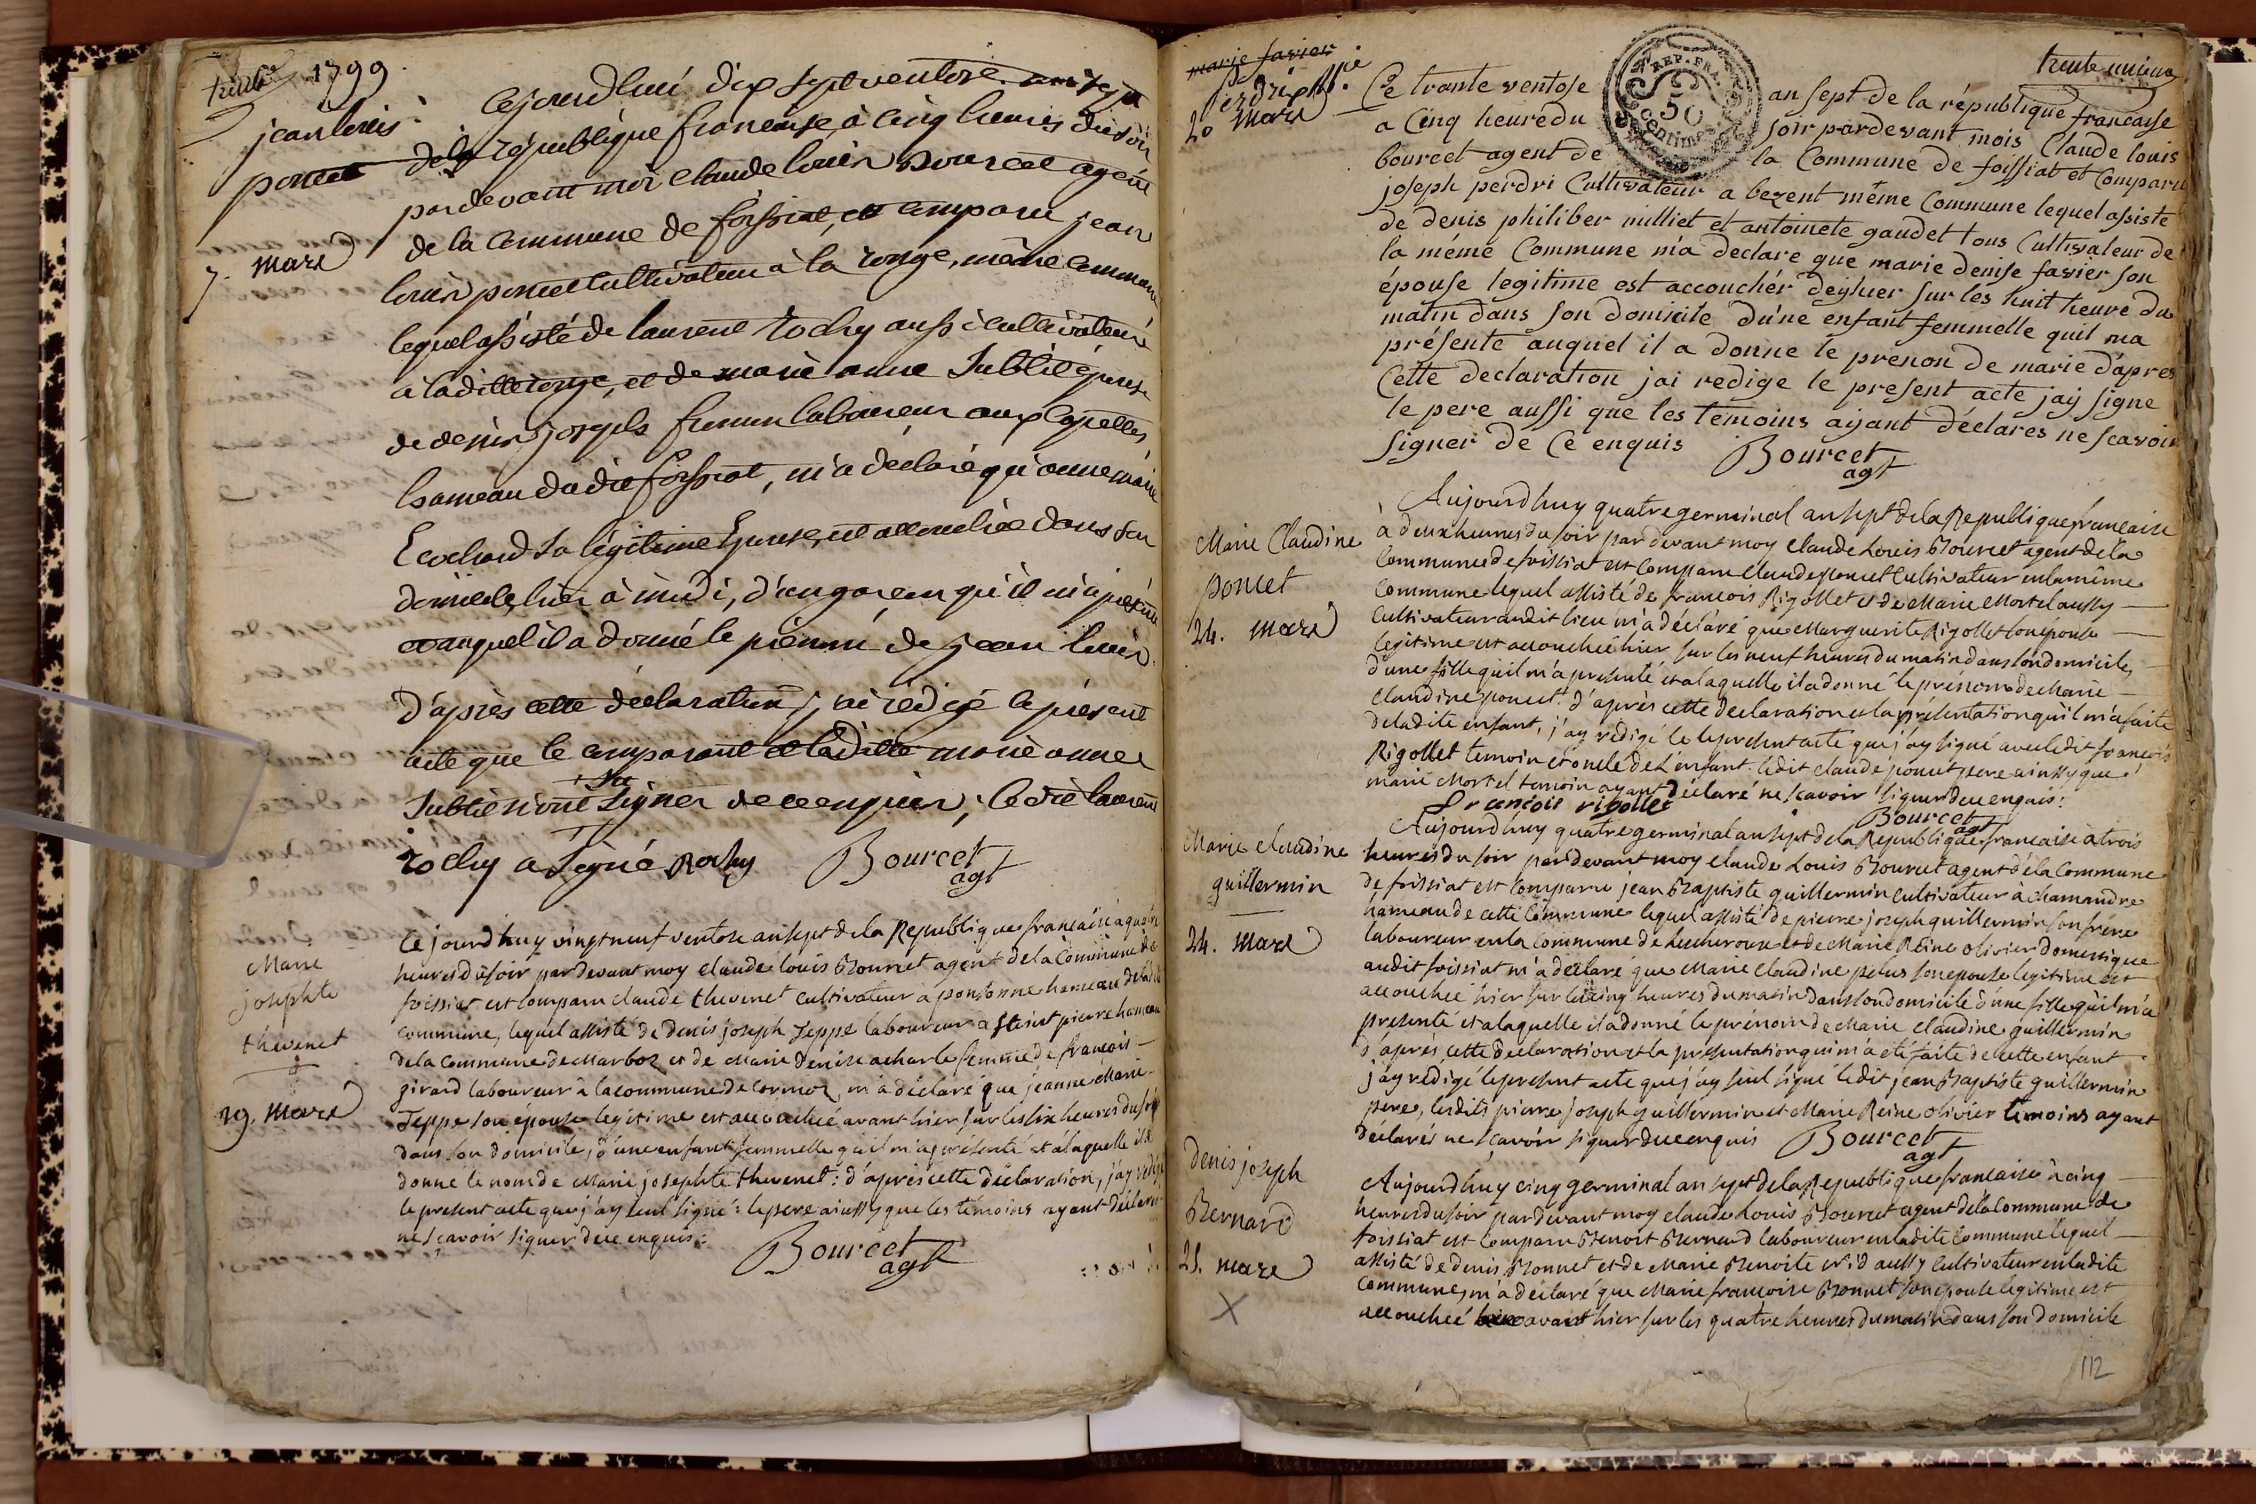 1799
jean louis
poncet
7. mars
Cejourd'hui dix sept ventose an sept
de la république francaise, à cinq heures du soir
pardevant moi claude louis Bourcet agent
de la commune de foissiat, est comparu jean
louis poncet cultivateur à la ronge, même commune
lequel assisté de laurent rochy aussi cultivateur
à la ditte ronge, et de marie anne Subtil épouse
de denis joseph firmin laboureur aux
hameau dudit foissiat, m'a déclaré qu'anne marie
Ecochard sa légitime Epouse, est accouchée dans son
domicile hier à midi, d'un garçon qu'il m'a présenté
et auquel il a donné le prénom de jean louis
d'après cette déclaration j'ai rédigé le présent
acte que le comparant et ladite marie anne
Subtil n'ont su signer de ce enquis ; ledit laurent
rochy a signé Rochy Bourcet
agt
Marie
josephte
thevenet
19. mars
Ce jourd'huy vingt neuf ventose an sept de la Republique francaise à quatre
heures du soir par devant moy claude louis Bourcet agent de la commune de
foissiat est comparu claude thevenet cultivateur à ponsonne hameau de ladite
commune, lequel assisté de Denis joseph Teppe laboureur a St pierre hameau
de la commune de Marboz et de Marie Denise acharle femme de francois
girard laboureur à la commune de Cormoz, m'a déclaré que jeanne Marie
Teppe son épouse legitime est accouchée avant hier sur les six heures du soir
dans son domicile, d'une enfant femmelle qu'il m'a présenté et à laquelle il a
donné le nom de Marie josephte thevenet : d'après cette déclaration, j'ay rédigé
le present acte que j'ay seul signé : le pere ainsy que les témoins ayant déclaré
ne scavoir signer de ce enquis :
Bourcet
agt
trente unieme
marie favier
perdrix
20 mars
REP. FRA.
50
centimes
Ce trante ventose an sept de la république francaise
a Cinq heure du soir pardevant mois Claude louis
bourcet agent de la Commune de foissiat et Comparu
joseph perdri Cultivateur a bezent même Commune lequel assiste
de denis philiber milliet et antoinete gaudet tous Cultivateur de
la même Commune m'a declare que marie denise favier son
épouse legitime est accouchér deyhuer sur les huit heure du
matin dans son domicile d'une enfant femmelle quil ma
présente auquel il a donne le prenon de marie d'apres
Cette declaration jai redige le present acte jaÿ signe
le pere aussi que les temoins aÿant déclares ne scavoir
signer de Ce enquis Bourcet
agt
Marie Claudine
poncet
24. mars
Aujourd'huy quatre germinal an sept de la Republique francaise
à deux heures du soir par devant moy claude Louis Bourcet agent de la
Commune de foissiat est comparu claude poncet Cultivateur en la même
Commune lequel assisté de francois Rigollet et de Marie Mortel aussy
Cultivateur audit lieu m'a déclaré que Marguerite Rigollet son épouse
legitime est accouchée hier sur les neuf heures du matin dans son domicile,
d'une fille qu'il m'a presenté et a laquelle il a donné le prénom de Marie
Claudine poncet. d'après cette declaration et la présentation qu'il m'a faite
de ladite enfant, j'ay rédigé le le present acte que j'ay signé avec ledit francois
Rigollet temoin et oncle de L'enfant. ledit claude poncet pere ainssy que
marie Mortel temoin ayant déclaré ne scavoir signer de ce enquis :
francois rigollet
Bourcet
agt
Marie claudine
guillermin
24. mars
Aujourd'huy quatre germinal an sept de la Republique francaise à trois
heures du soir par devant moy claude Louis Bourcet agent de la Commune
de foissiat est comparu jean Baptiste guillermin cultivateur à chamandre
hameau de cette Commune lequel assisté de pierre joseph guillermin son frère
laboureur en la Commune de Lescheroux et de Marie Reine olivier Domestique
audit foissiat m'a déclaré que Marie Claudine son épouse legitime est
accouchée hier sur les cinq heures du matin dans son domicile d'une fille qu'il m'a
presenté et a laquelle il a donné le prénom de Marie Claudine guillermin
d'après cette déclaration et la présentation qui m'a été faite de cette enfant
j'ay rédigé le present acte que j'ay seul signé ledit jean Baptiste guillermin
pere, lesdits pierre joseph guillermin et Marie Reine olivier temoins ayant
déclarés ne scavoir signer de ce enquis Bourcet
agt
Denis joseph
Bernard
25. mars
Aujourd'huy cinq germinal an sept de la Republique francaise à cinq
heures du soir par devant moy claude Louis Bourcet agent de la Commune de
foissiat est comparu Benoit Bernard laboureur en ladite Commune lequel
assisté de denis Bonnet et de Marie Benoite aussy Cultivateur en ladite
Commune, m'a déclaré que Marie francoise Bonnet son épouse légitime est
accouchée avant hier sur les quatre heures du matin dans son domicile
112